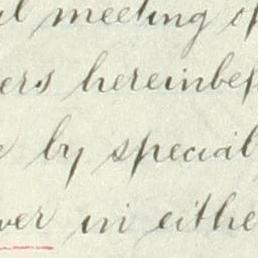 al meeting of
ers hereinbef
by special
ver in eithe